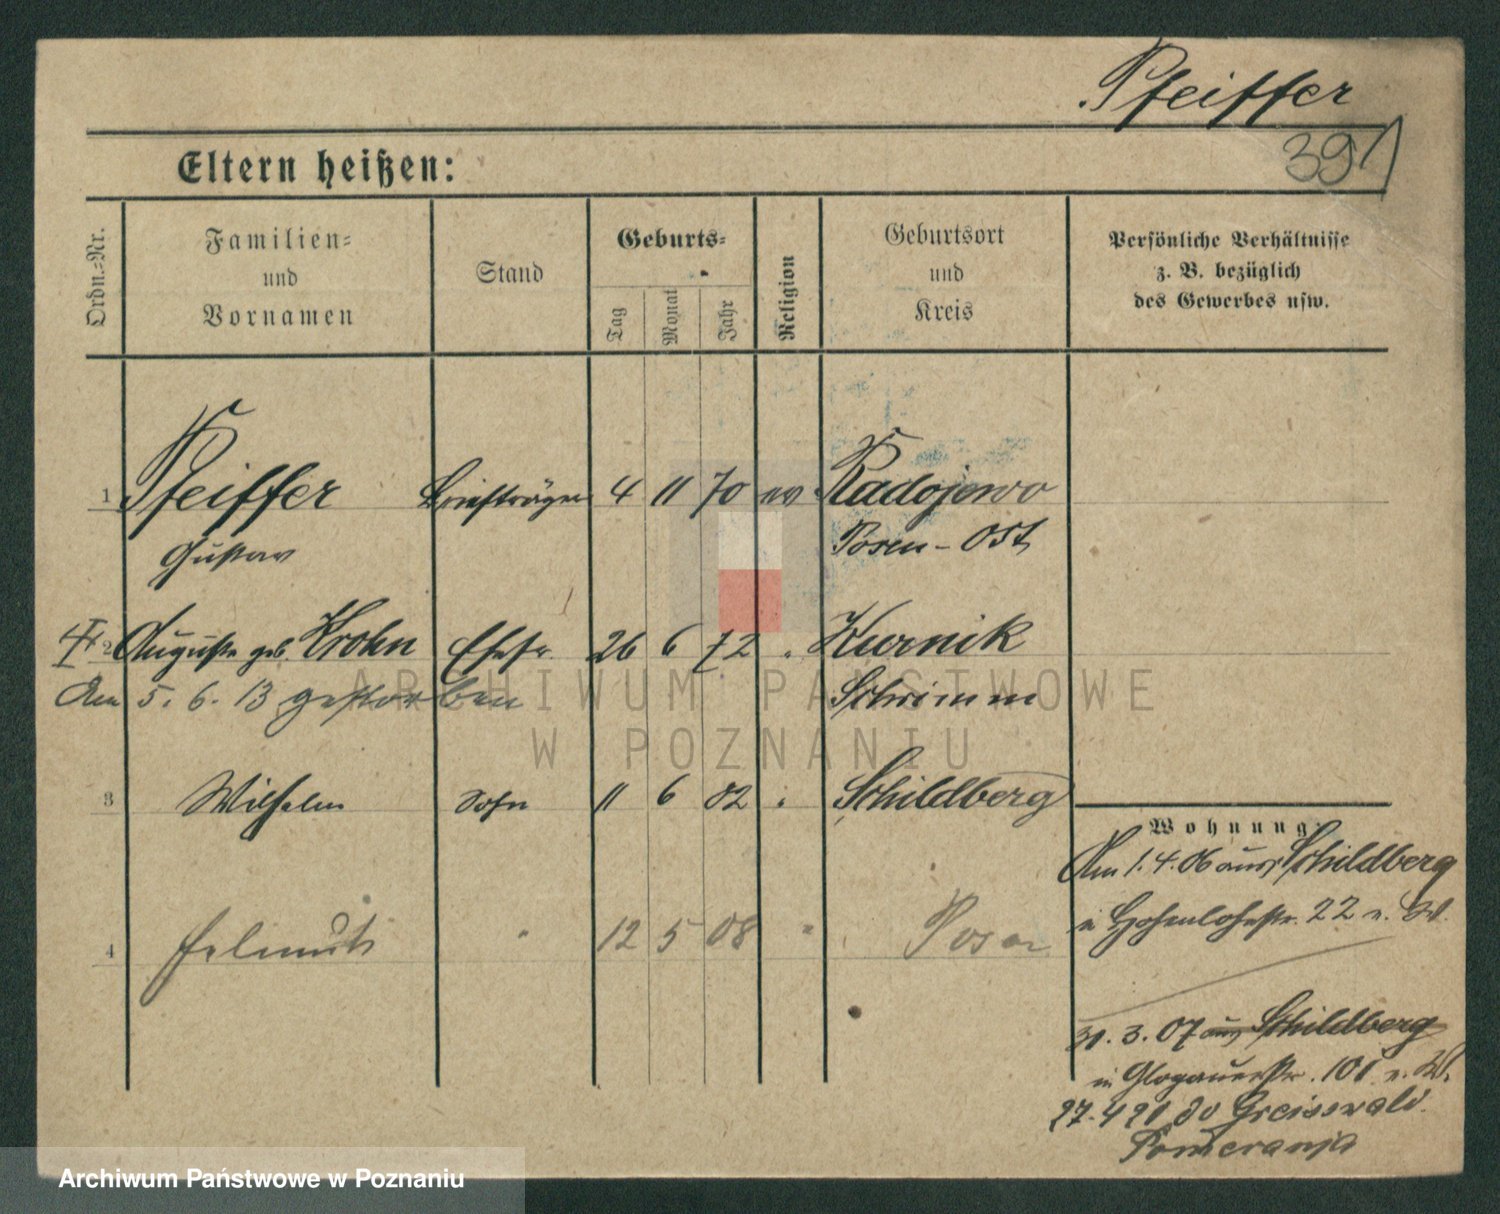 Pfeiffer
391
Eltern heißen:
Ordn.-Nr.
Familien-
und
Vornamen
Stand
Geburts-
Tag
Monat
Jahr
Religion
Geburtsort
und
Kreis
Persönliche Verhältnisse
z. B. bezüglich
des Gewerbes usw.
1 Pfeiffer Briefträger 4 11 70 ev Radojewo
Gustav Posen-Ost
2 Auguste geb. Krohn Ehefr. 26 6 72 " Kurnik
Am 5. 6. 13 gestorben Schrimm
3 Wilhelm Sohn 11 6 02 " Schildberg
Wohnung:
Am 1. 4. 06 aus Schildberg
n Hohenlohestr. 22 e. W.
4 Helmuth " 12 5 08 " Posen
30. 3. 07 aus Schildberg
n Glogauerstr. 101 e. W.
27. 4 21 do Greisswald.
Pomerania
ARCHIWUM PAŃSTWOWE
W POZNANIU
Archiwum Państwowe w Poznaniu